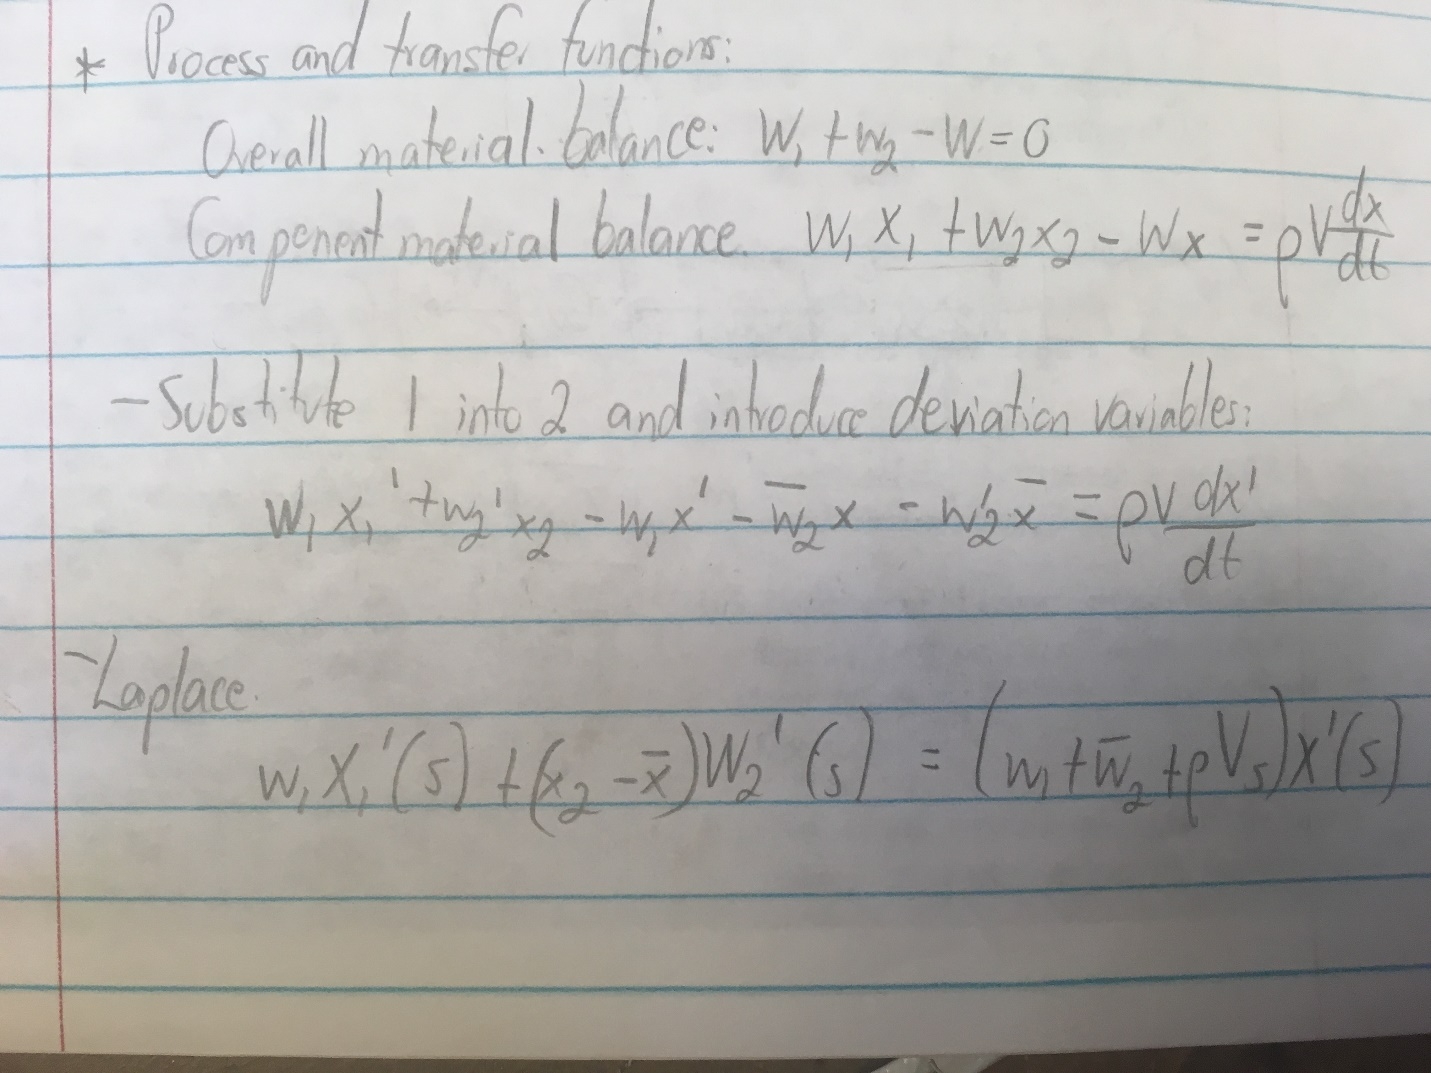 * Process and transfer functions:
Overall material balance: W₁ + w₂ - W = 0
Component material balance. W₁ X₁ + W₂x₂ - Wx = ρV dx/dt
- Substitute 1 into 2 and introduce deviation variables:
w₁ x₁' + w₂' x₂ - w₁ x' - w̅₂ x - w₂' x̅ = ρV dx'/dt
- Laplace.
w₁ X₁'(s) + (x₂ - x̅)W₂'(s) = (w₁ + w̅₂ + ρVs)X'(s)